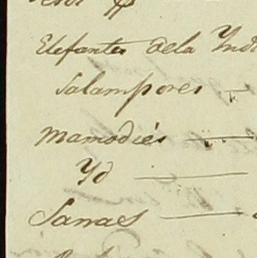 Elefantes dela Yndi
Salampores
Mamodiés
Yd
Sanaes